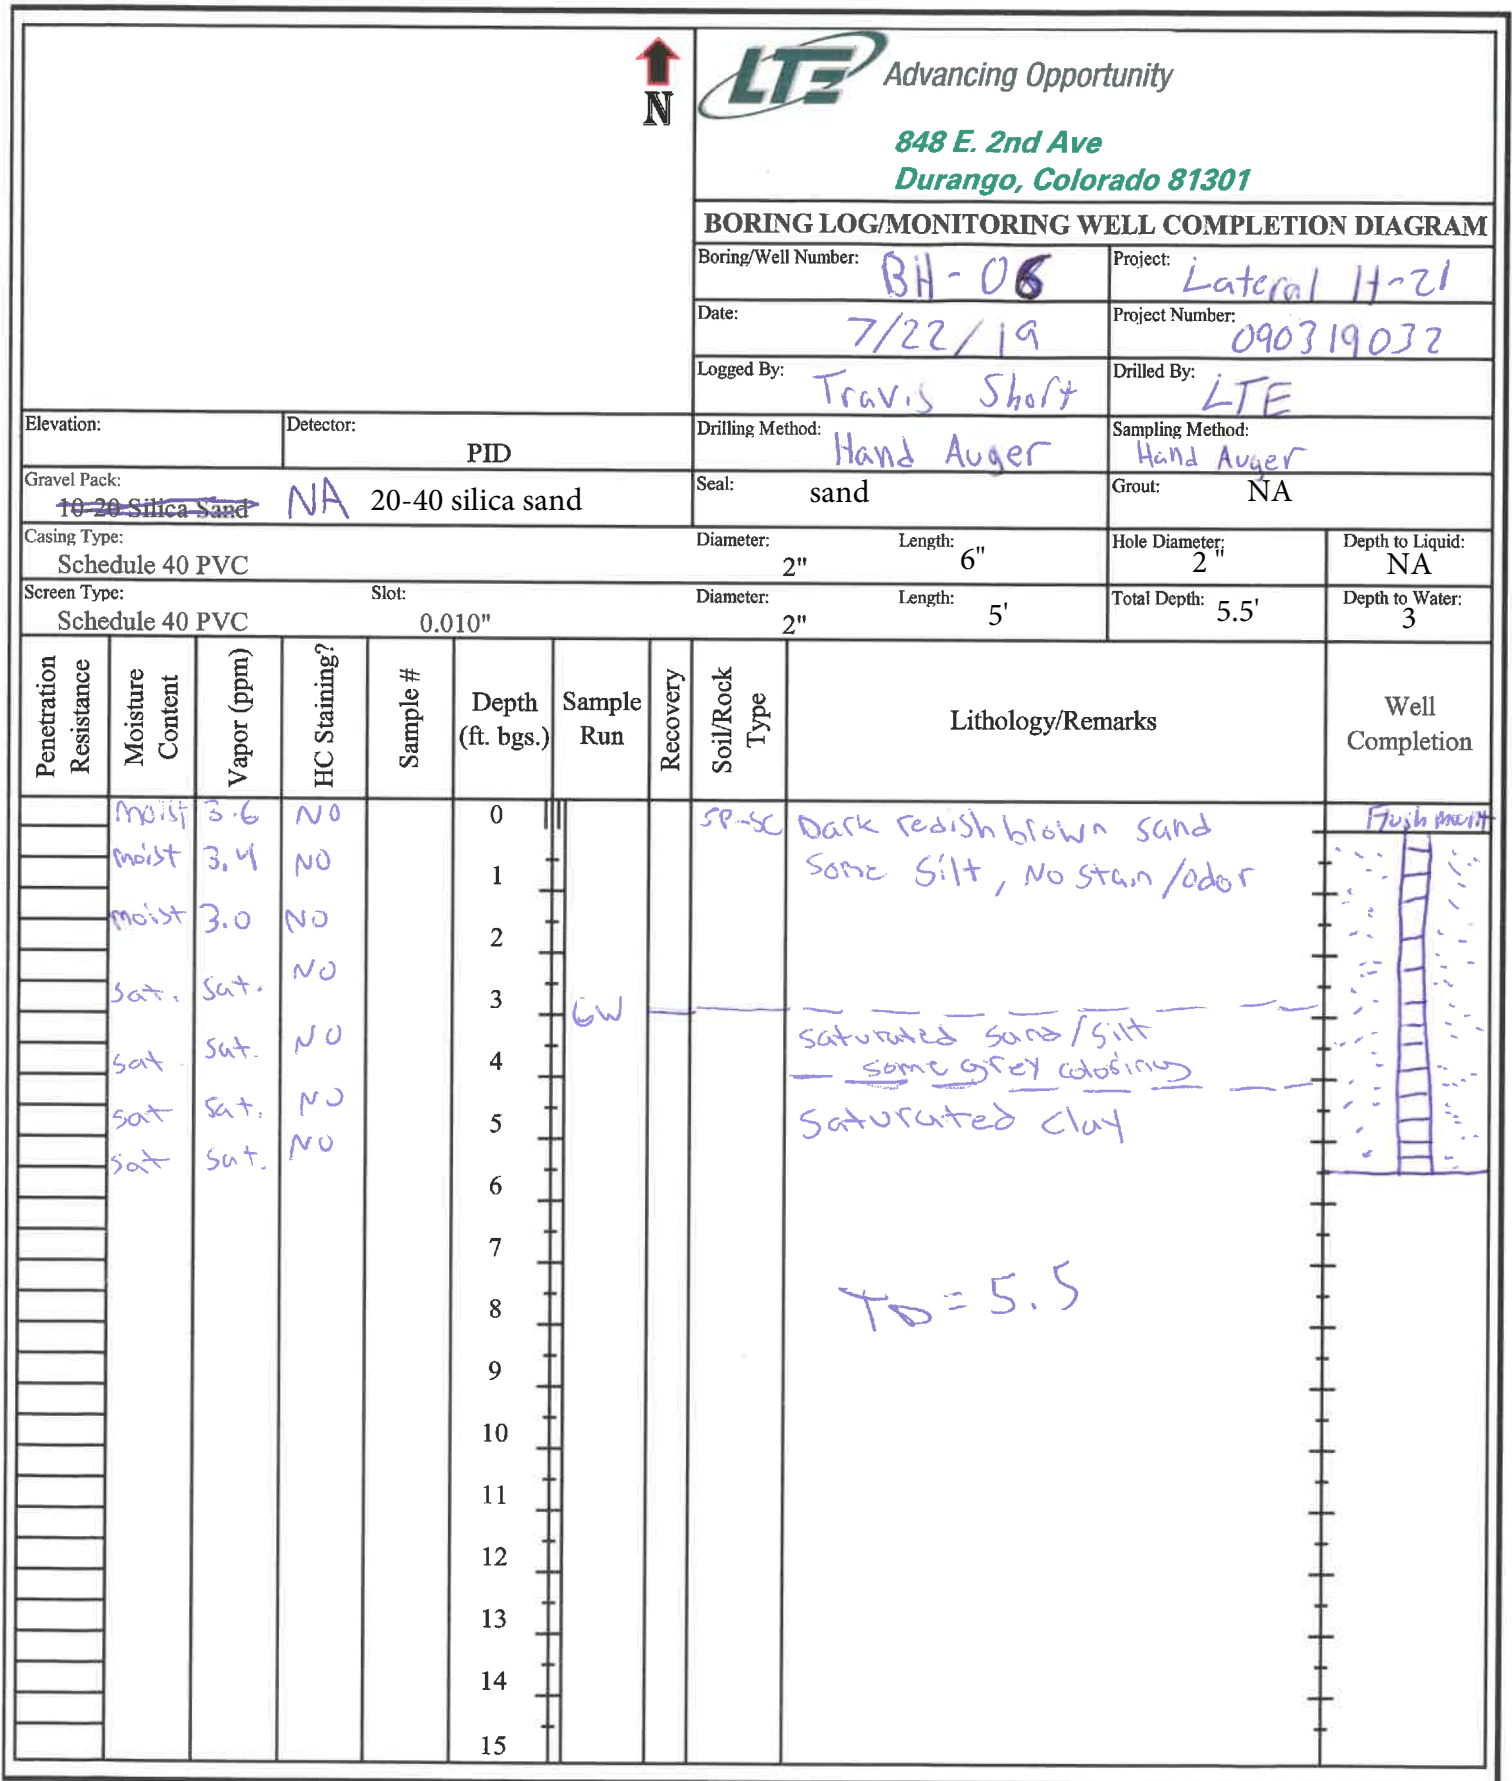 N
LTE Advancing Opportunity
848 E. 2nd Ave
Durango, Colorado 81301
BORING LOG/MONITORING WELL COMPLETION DIAGRAM
Boring/Well Number: BH-06 Project: Lateral H-21
Date: 7/22/19 Project Number: 090319032
Logged By: Travis Short Drilled By: LTE
Elevation: Detector: PID Drilling Method: Hand Auger Sampling Method: Hand Auger
Gravel Pack: 10-20 Silica Sand NA 20-40 silica sand Seal: sand Grout: NA
Casing Type: Schedule 40 PVC Diameter: 2" Length: 6" Hole Diameter: 2" Depth to Liquid: NA
Screen Type: Schedule 40 PVC Slot: 0.010" Diameter: 2" Length: 5' Total Depth: 5.5' Depth to Water: 3
Penetration Resistance Moisture Content Vapor (ppm) HC Staining? Sample # Depth (ft. bgs.) Sample Run Recovery Soil/Rock Type Lithology/Remarks Well Completion
moist 3.6 NO 0 SP-SC Dark redish brown sand Flush mount
moist 3.4 NO 1 Some Silt, No stain/odor
moist 3.0 NO 2
sat. sat. NO 3 GW
saturated sand/silt
sat sat. NO 4 some grey coloring
sat sat. NO 5 saturated clay
sat sat. NO
6
7
8 TD = 5.5
9
10
11
12
13
14
15